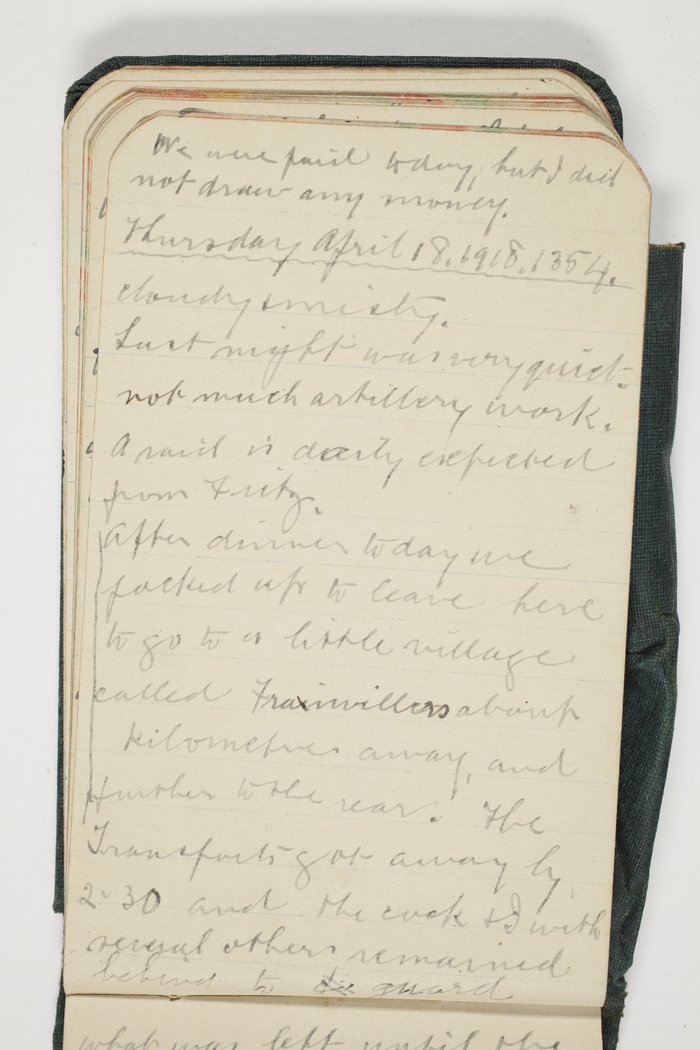 We were paid today, but I did
not draw any money.
Thursday April 18. 1918. 1354.
cloudy & misty.
Last night was very quiet.
not much artillery work.
A raid is daily expected
from Fritz.
After dinner today we
packed up to leave here
to go to a little village
called Franvillers about
kilometres away, and
further to the rear. The
Transports got away by
2-30 and the cook & I with
several others remained
behind to guard
what was left until the